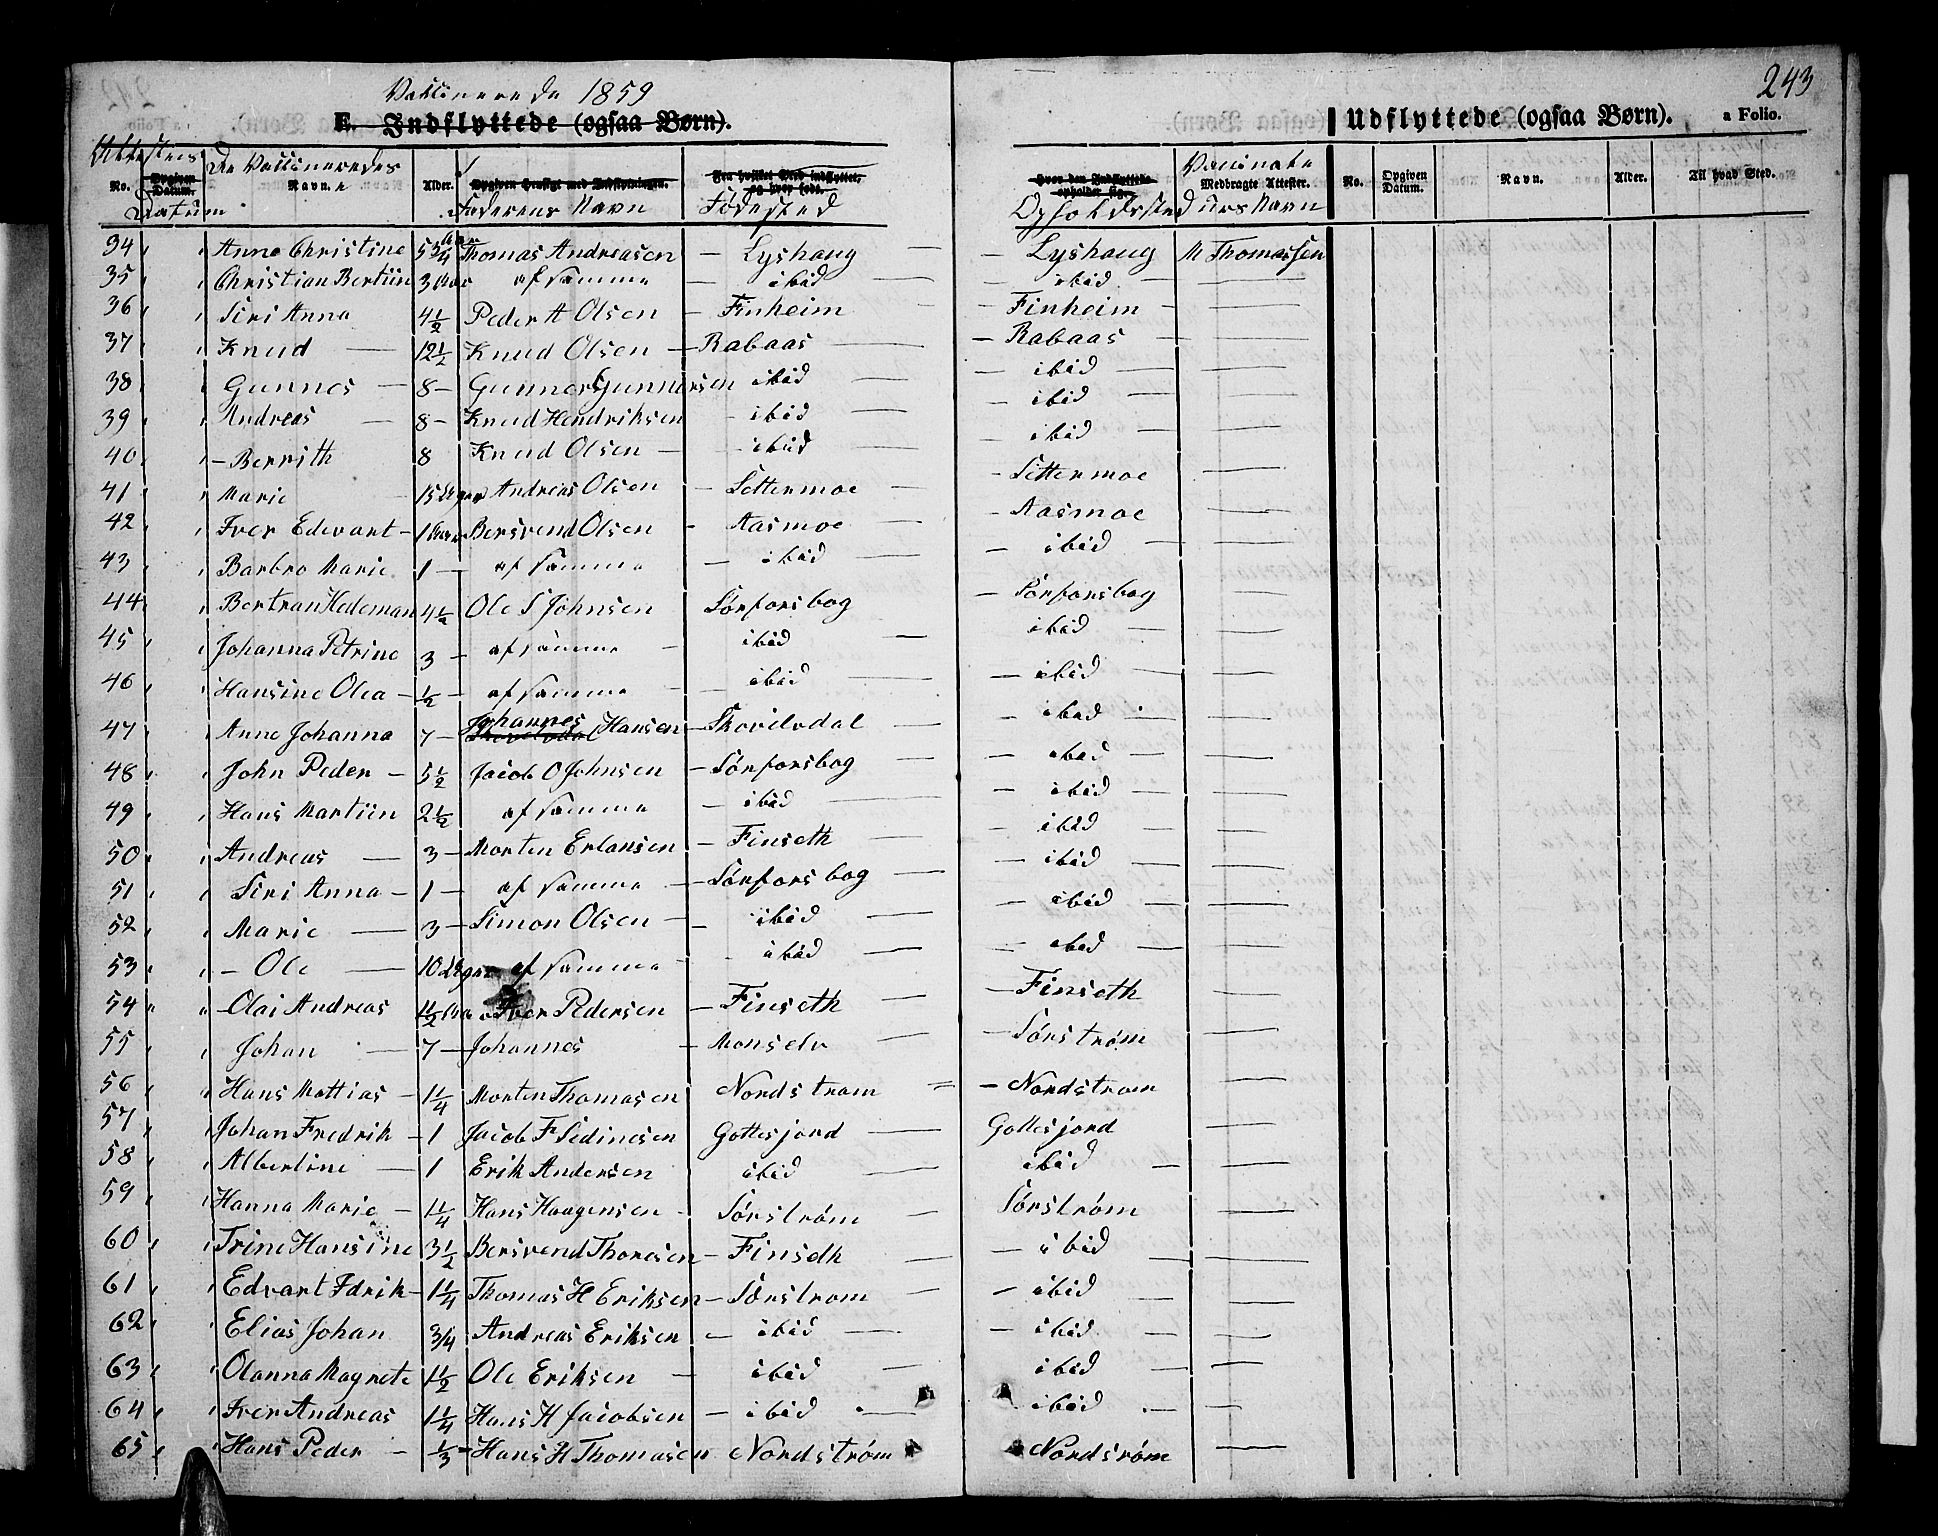 Vaksinerede 1859
243
E. Indflyttede (ogsaa Børn).
Udflyttede (ogsaa Børn). a Folio.
Attestens Datum
No. Opgiven Datum. De Vaksineredes Navne Alder. Opgiven Hensigt med Indflytningen. Faderens Navn Fra hvilket Sted indflyttet, og hvor født. Fødested Hvor den Indflyttede opholder sig. Opholdssted Medbragte Attester. Vaccinateurs Navn No. Opgiven Datum. Navn. Alder. Til hvad Sted.
34 " " Anne Christine 5 3/4 Aar Thomas Andreasen — Lyshaug — Lyshaug M Thomassen
35 " " Christian Bertiin 3 Aar af samme — ibid — ibid —
36 " " Siri Anna 4 1/2 Peder A Olsen — Finheim — Finheim —
37 " " Knud — 12 1/2 Knud Olsen — Rabaas — Rabaas —
38 " " Gunnes — 8 — Gunner Gunnersen ibid — ibid —
39 " " Andreas — 8 — Knud Hendriksen — ibid — ibid —
40 " — Berrith 8 Knud Olsen — ibid — ibid —
41 " " Marie 15 Uger Andreas Olsen — Settermoe — Settermoe —
42 " " Iver Edevart — 1 Aar Bersvend Olsen - Aasmoe — Aasmoe —
43 " " Barbro Marie 1 — af samme — ibid — ibid —
44 " " Bertran Hedeman 4 1/2 Ole S Johnsen Sørforsbog — Sørforsbog —
45 " " Johanna Petrine 3 — af samme — ibid — ibid —
46 " " Hansine Olea — 1/2 — af samme — ibid — ibid —
47 " " Anne Johanna 7 — Johannes Hansen — Skovilvdal — ibid —
48 " " John Peder — 5 1/2 Jacob O Johnsen — Sørforsbog — ibid —
49 " " Hans Martiin 2 1/2 af samme — ibid — ibid —
50 " " Andreas — 3 — Morten Erlansen — Finseth — ibid —
51 " " Siri Anna — 1 — af samme — Sørforsbog — ibid —
52 " " Marie — 3 — Simon Olsen — ibid — ibid —
53 " " — Ole — 10 Uger af samme ibid — ibid —
54 " " — Olai Andreas 1 1/2 Aar Iver Pedersen — Finseth — Finseth —
55 " " Johan — 7 — Johannes — Monselv — Sørstrøm —
56 " " Hans Mattias — 1 1/4 Morten Thomasen Nordstrøm — Nordstrom —
57 " " Johan Fredrik — 1 Jacob F Sedinesen Gottesjord — Gottesjord —
58 " " Albertine — 1 Erik Andersen ibid — ibid —
59 " " Hanna Marie — 1 1/4 Hans Haagensen - Sørstrøm — Sørstrøm —
60 " " Trine Hansine 3 1/2 Bersvend Thoresen — Finseth — ibid —
61 " " Edvart Fdrik — 1 1/4 Thomas H Eriksen — Sørstrom — ibid —
62 " " Elias Johan 3/4 Andreas Eriksen — ibid — ibid —
63 " " Olanna Magrete 1 1/2 Ole Eriksen — ibid — ibid —
64 " " Iver Andreas 1 1/4 Hans H Jacobsen — ibid — ibid —
65 " " Hans Peder — 1/3 — Hans H Thomasen Nordstrøm Nordsrøm —